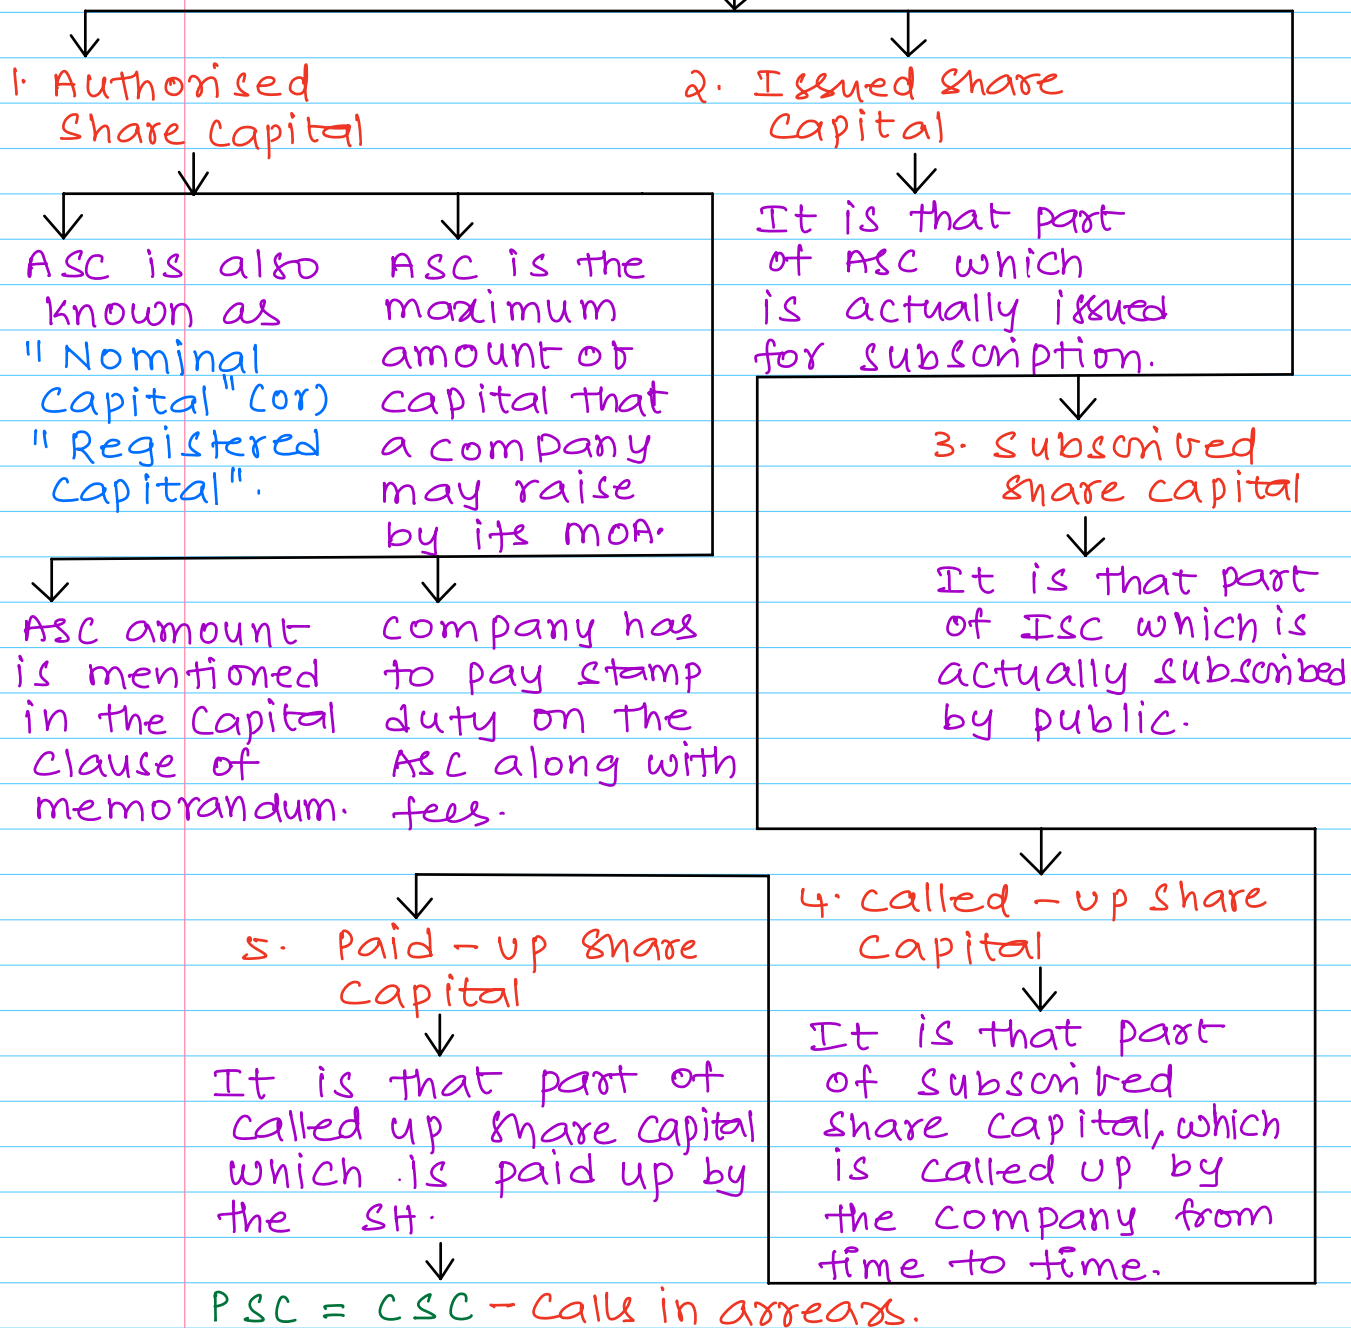 1. Authorised
Share Capital
ASC is also
known as
"Nominal
Capital" (or)
"Registered
Capital".
ASC is the
maximum
amount of
capital that
a company
may raise
by its MOA.
ASC amount
is mentioned
in the Capital
Clause of
memorandum.
company has
to pay stamp
duty on the
ASC along with
fees.
2. Issued Share
Capital
It is that part
of ASC which
is actually issued
for subscription.
3. Subscribed
Share capital
It is that part
of ISC which is
actually subscribed
by public.
4. Called-up Share
Capital
It is that part
of subscribed
share capital, which
is called up by
the company from
time to time.
5. Paid-up Share
Capital
It is that part of
called up share capital
which is paid up by
the SH.
PSC = CSC - Calls in arrears.